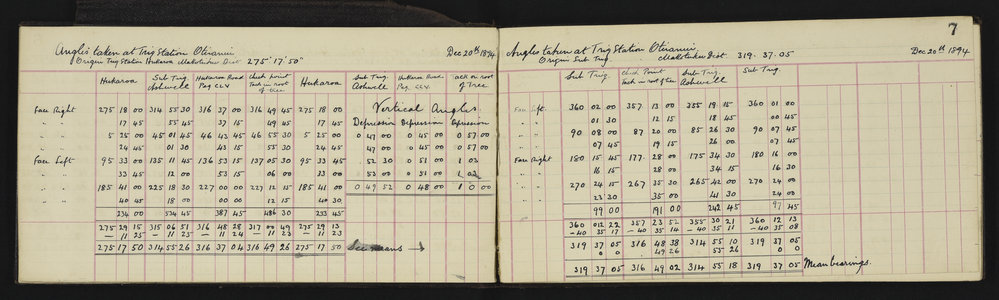 Angles taken at Trig Station Otiranui Dec 20th 1894
Origin Trig Station Hukaroa Maketuku Dist 275° 17' 50"
Hukaroa Sub Trig Ashwell Hukaroa Road Peg CLV Check point Tack in root of tree Hukaroa Sub Trig Ashwell Hukaroa Road Peg CLV Tack in root of Tree
Face Right 275 18 00 314 55 30 316 37 00 316 49 45 275 18 00 Vertical Angles
" " 17 45 55 45 37 15 49 45 17 45 Depression Depression Depression
" " 5 25 00 45 01 45 46 43 45 46 55 30 5 25 00 0 47 00 0 45 00 0 57 00
" " 24 45 01 30 43 15 55 30 24 45 47 00 0 45 00 0 57 00
Face Left 95 33 00 135 11 45 136 53 15 137 05 30 95 33 45 52 30 0 51 00 1 03
" " 33 45 12 00 53 15 06 00 33 45 52 00 0 51 00 1 03
" " 185 41 00 225 18 30 227 00 00 227 12 15 185 41 00 0 49 52 0 48 00 1 0 00
" " 40 45 18 00 00 00 12 15 40 30
234 00 534 45 387 45 486 30 233 45
275 29 15 315 06 51 316 48 28 317 00 49 275 29 13
— 11 25 — 11 25 — 11 24 — 11 23 — 11 23
275 17 50 314 55 26 316 37 04 316 49 26 275 17 50 See means →
7
Angles taken at Trig Station Otiranui Dec 20th 1894
Origin Sub Trig Maketuku Dist. 319. 37. 05
Sub Trig. Check Point Tack in root of tree Sub Trig Ashwell Sub Trig.
Face Left. 360 02 00 357 13 00 355 19 15 360 01 00
" " 01 30 12 15 18 45 00 45
90 08 00 87 20 00 85 26 30 90 07 45
07 45 19 15 26 00 07 45
Face Right 180 15 45 177. 28 00 175 34 30 180 16 00
" " 16 15 28 00 34 15 16 30
" " 270 24 15 267 35 30 265 42 00 270 24 00
" " 23 30 35 00 41 30 24 00
99 00 191 00 242 45 97 45
360 012 22 357 23 52 355 30 21 360 12 13
—40 35 17 —40 35 14 —40 35 11 —40 35 08
319 37 05 316 48 38 314 55 10 319 37 05
0 0 49 26 55 26 0 0
319 37 05 316 49 02 314 55 18 319 37 05 Mean bearings.